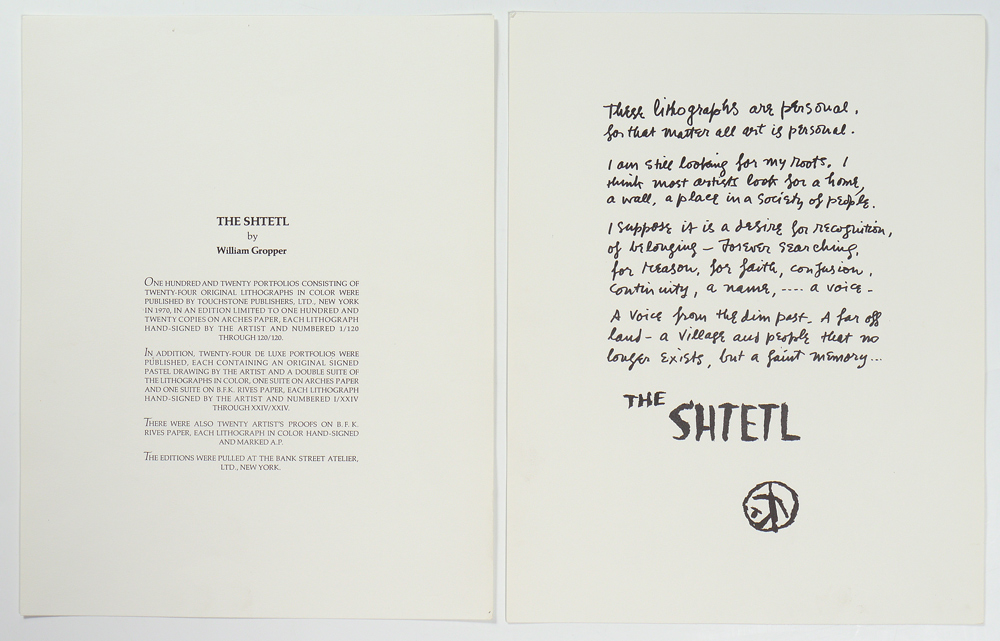 THE SHTETL
by
William Gropper
ONE HUNDRED AND TWENTY PORTFOLIOS CONSISTING OF
TWENTY-FOUR ORIGINAL LITHOGRAPHS IN COLOR WERE
PUBLISHED BY TOUCHSTONE PUBLISHERS, LTD., NEW YORK
IN 1970, IN AN EDITION LIMITED TO ONE HUNDRED AND
TWENTY COPIES ON ARCHES PAPER, EACH LITHOGRAPH
HAND-SIGNED BY THE ARTIST AND NUMBERED 1/120
THROUGH 120/120.
IN ADDITION, TWENTY-FOUR DE LUXE PORTFOLIOS WERE
PUBLISHED, EACH CONTAINING AN ORIGINAL SIGNED
PASTEL DRAWING BY THE ARTIST AND A DOUBLE SUITE OF
THE LITHOGRAPHS IN COLOR, ONE SUITE ON ARCHES PAPER
AND ONE SUITE ON B.F.K. RIVES PAPER, EACH LITHOGRAPH
HAND-SIGNED BY THE ARTIST AND NUMBERED I/XXIV
THROUGH XXIV/XXIV.
THERE WERE ALSO TWENTY ARTIST'S PROOFS ON B.F.K.
RIVES PAPER, EACH LITHOGRAPH IN COLOR HAND-SIGNED
AND MARKED A.P.
THE EDITIONS WERE PULLED AT THE BANK STREET ATELIER,
LTD., NEW YORK.
These lithographs are personal.
for that matter all art is personal.
I am still looking for my roots. I
think most artists look for a home,
a wall, a place in a society of people.
I suppose it is a desire for recognition,
of belonging – Forever searching,
for reason, for faith, confusion,
continuity, a name, ---- a voice –
A voice from the dim past. A far off
land – a village and people that no
longer exists, but a faint memory...
THE
SHTETL